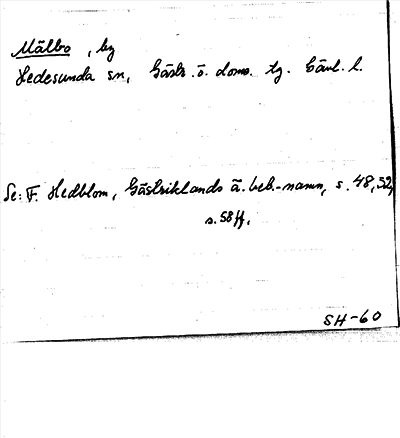 Mälbo, by
Hedesunda sn, Gästr. ö. doms. tg. Gävl. l.
Se: F. Hedblom, Gästriklands ä. beb.-namn, s. 48, 52,
s. 58 ff.
SH-60